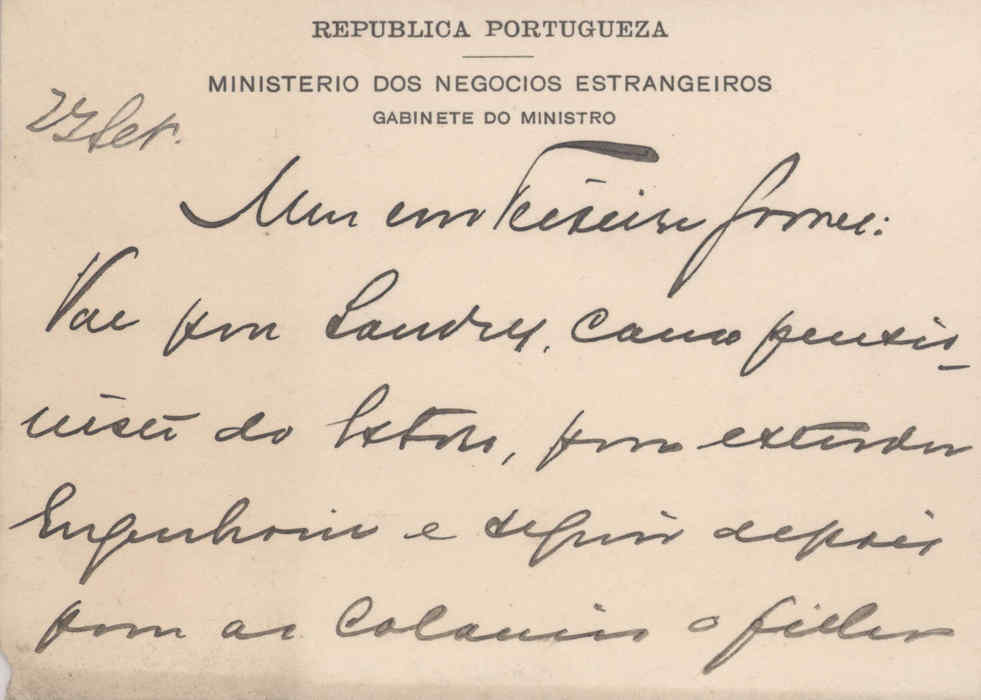 REPUBLICA PORTUGUEZA
MINISTERIO DOS NEGOCIOS ESTRANGEIROS
GABINETE DO MINISTRO
27 Set.
Meu caro Teixeira Gomes:
Vae para Londres, como pensio-
nista do Estado, para estudar
Engenharia e seguir depois
para as Colonias o filho